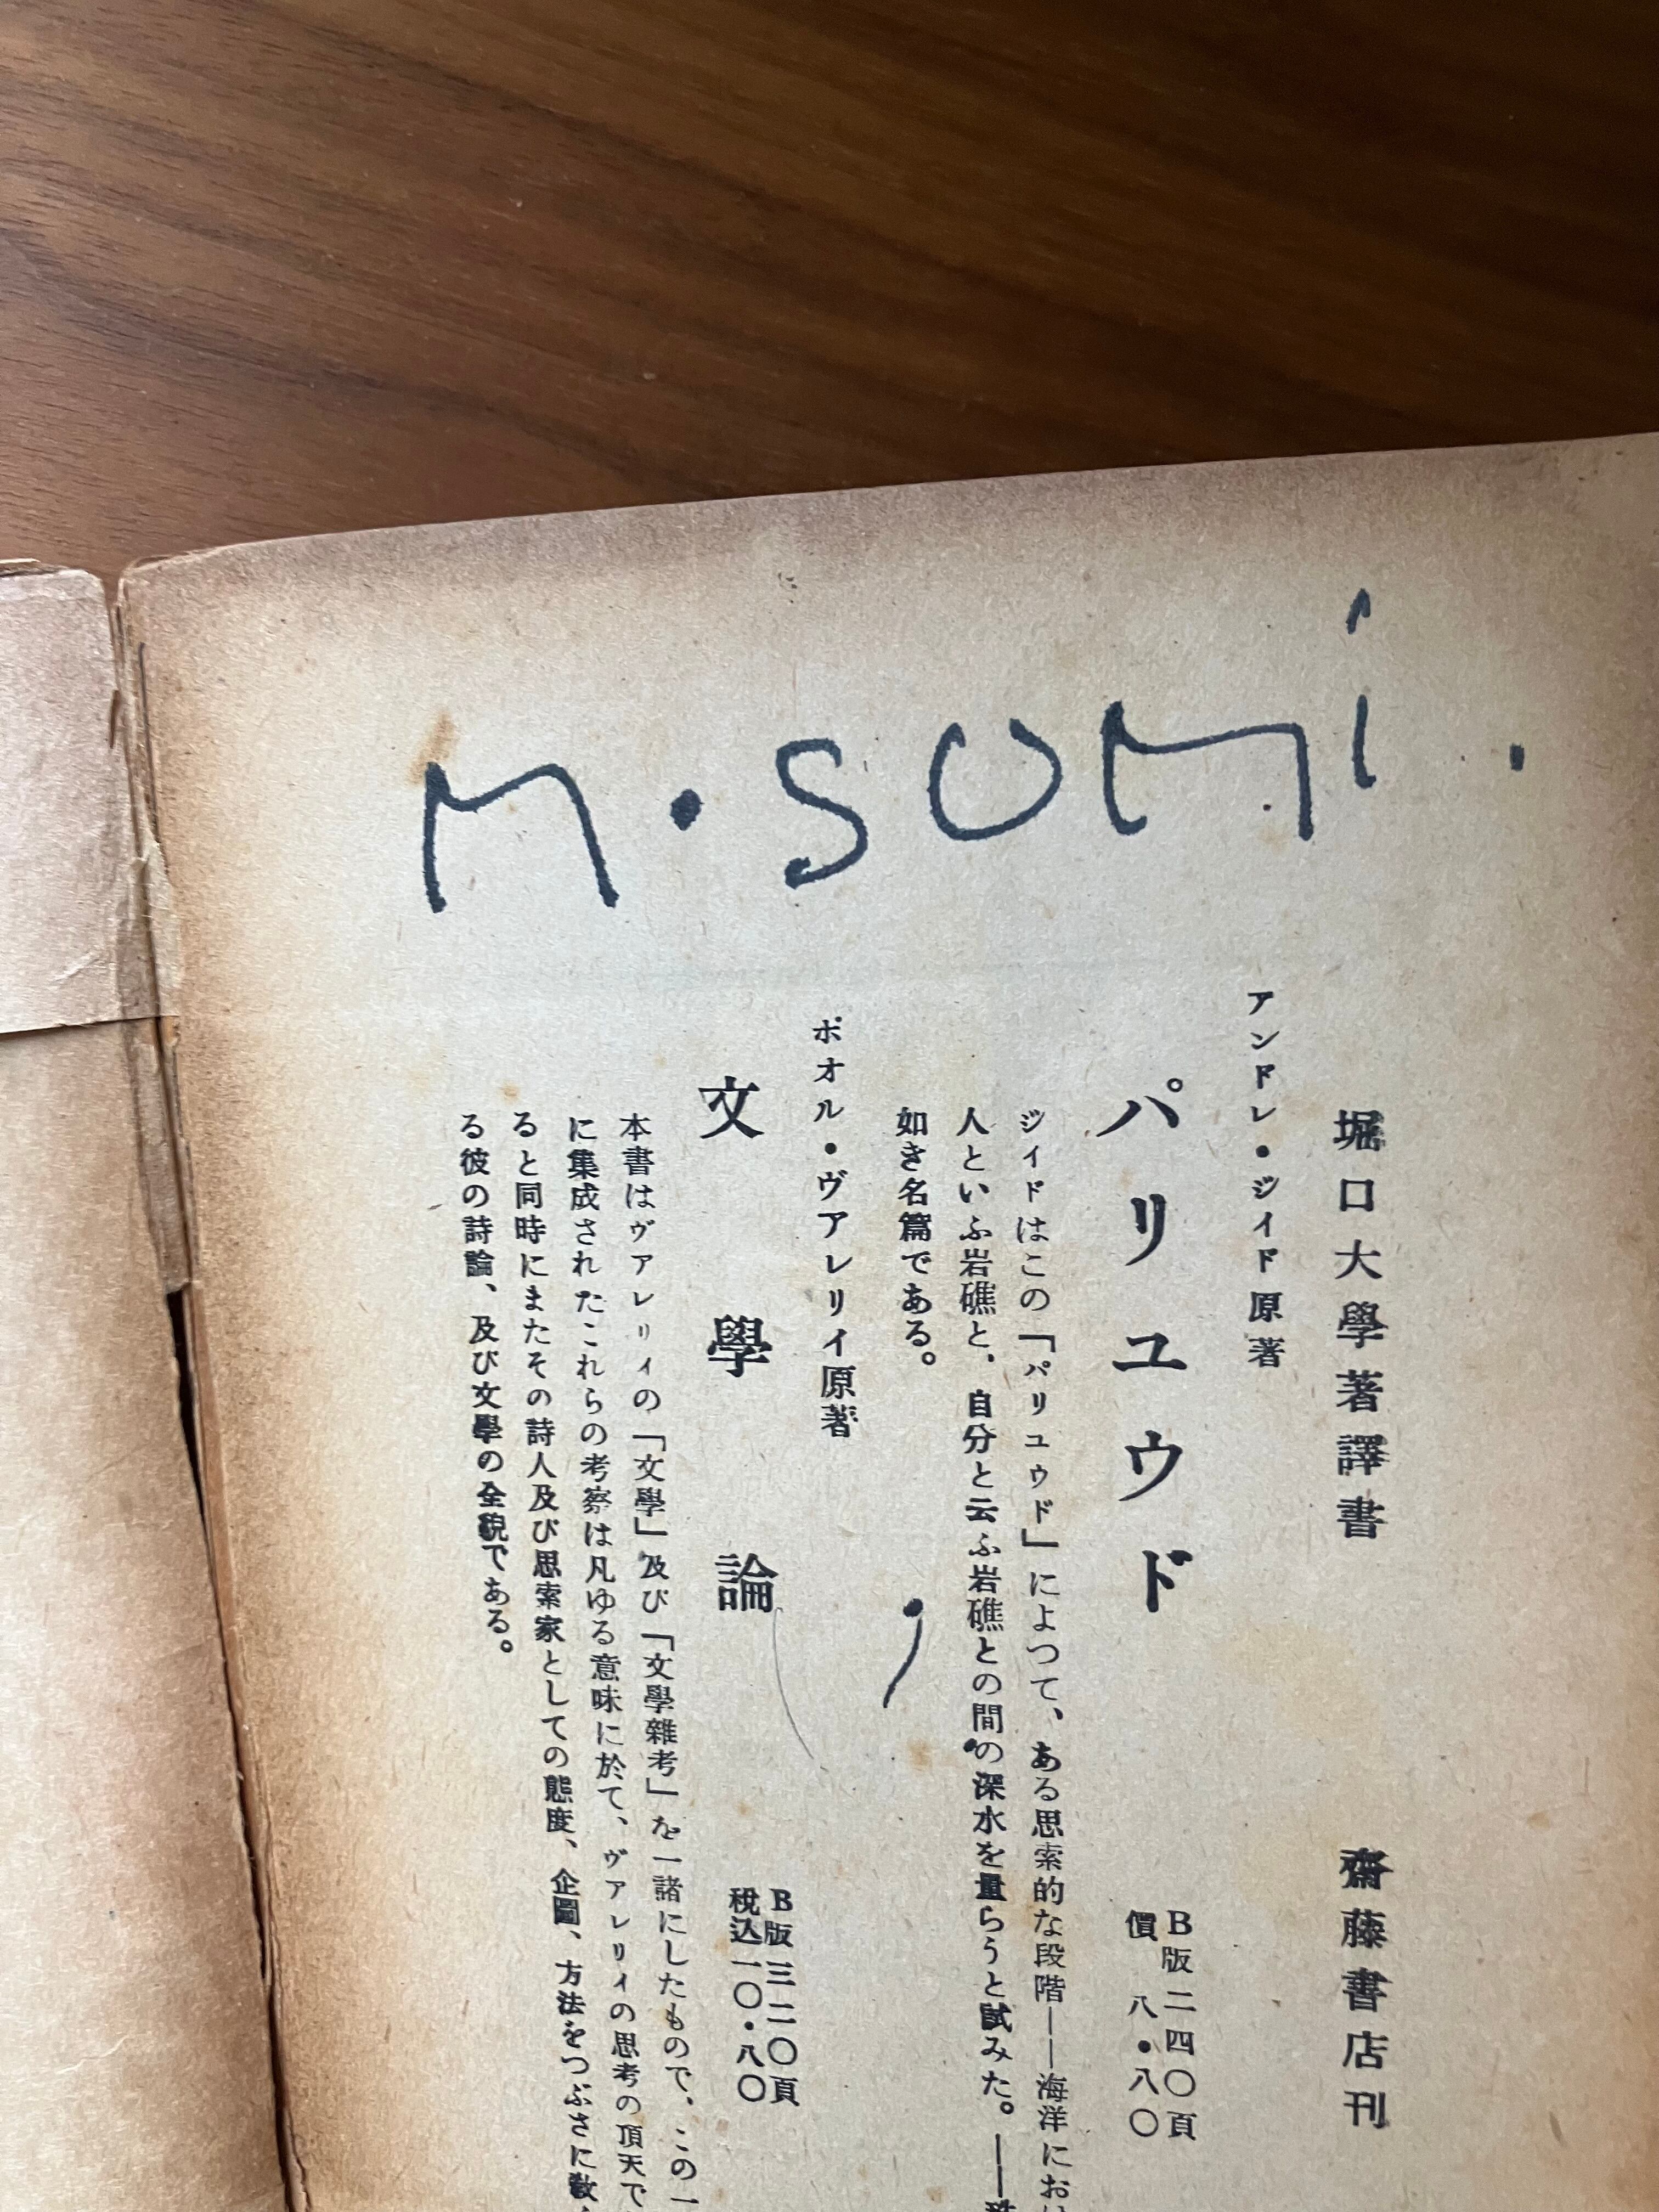 M・SUMi.
堀口大學著譯書
齋藤書店刊
アンドレ・ジイド原著
パリユウド
B版二四〇頁
價 八・八〇
ジイドはこの「パリユウド」によつて、ある思索的な段階――海洋におけ
人といふ岩礁と、自分と云ふ岩礁との間の深水を量らうと試みた。――
如き名篇である。
ポオル・ヴアレリイ原著
文學論
B版三二〇頁
税込一〇・八〇
本書はヴアレリイの「文學」及び「文學雜考」を一諸にしたもので、この一
に集成されたこれらの考察は凡ゆる意味に於て、ヴアレリイの思考の頂天で
ると同時にまたその詩人及び思索家としての態度、企圖、方法をつぶさに敎
る彼の詩論、及び文學の全貌である。